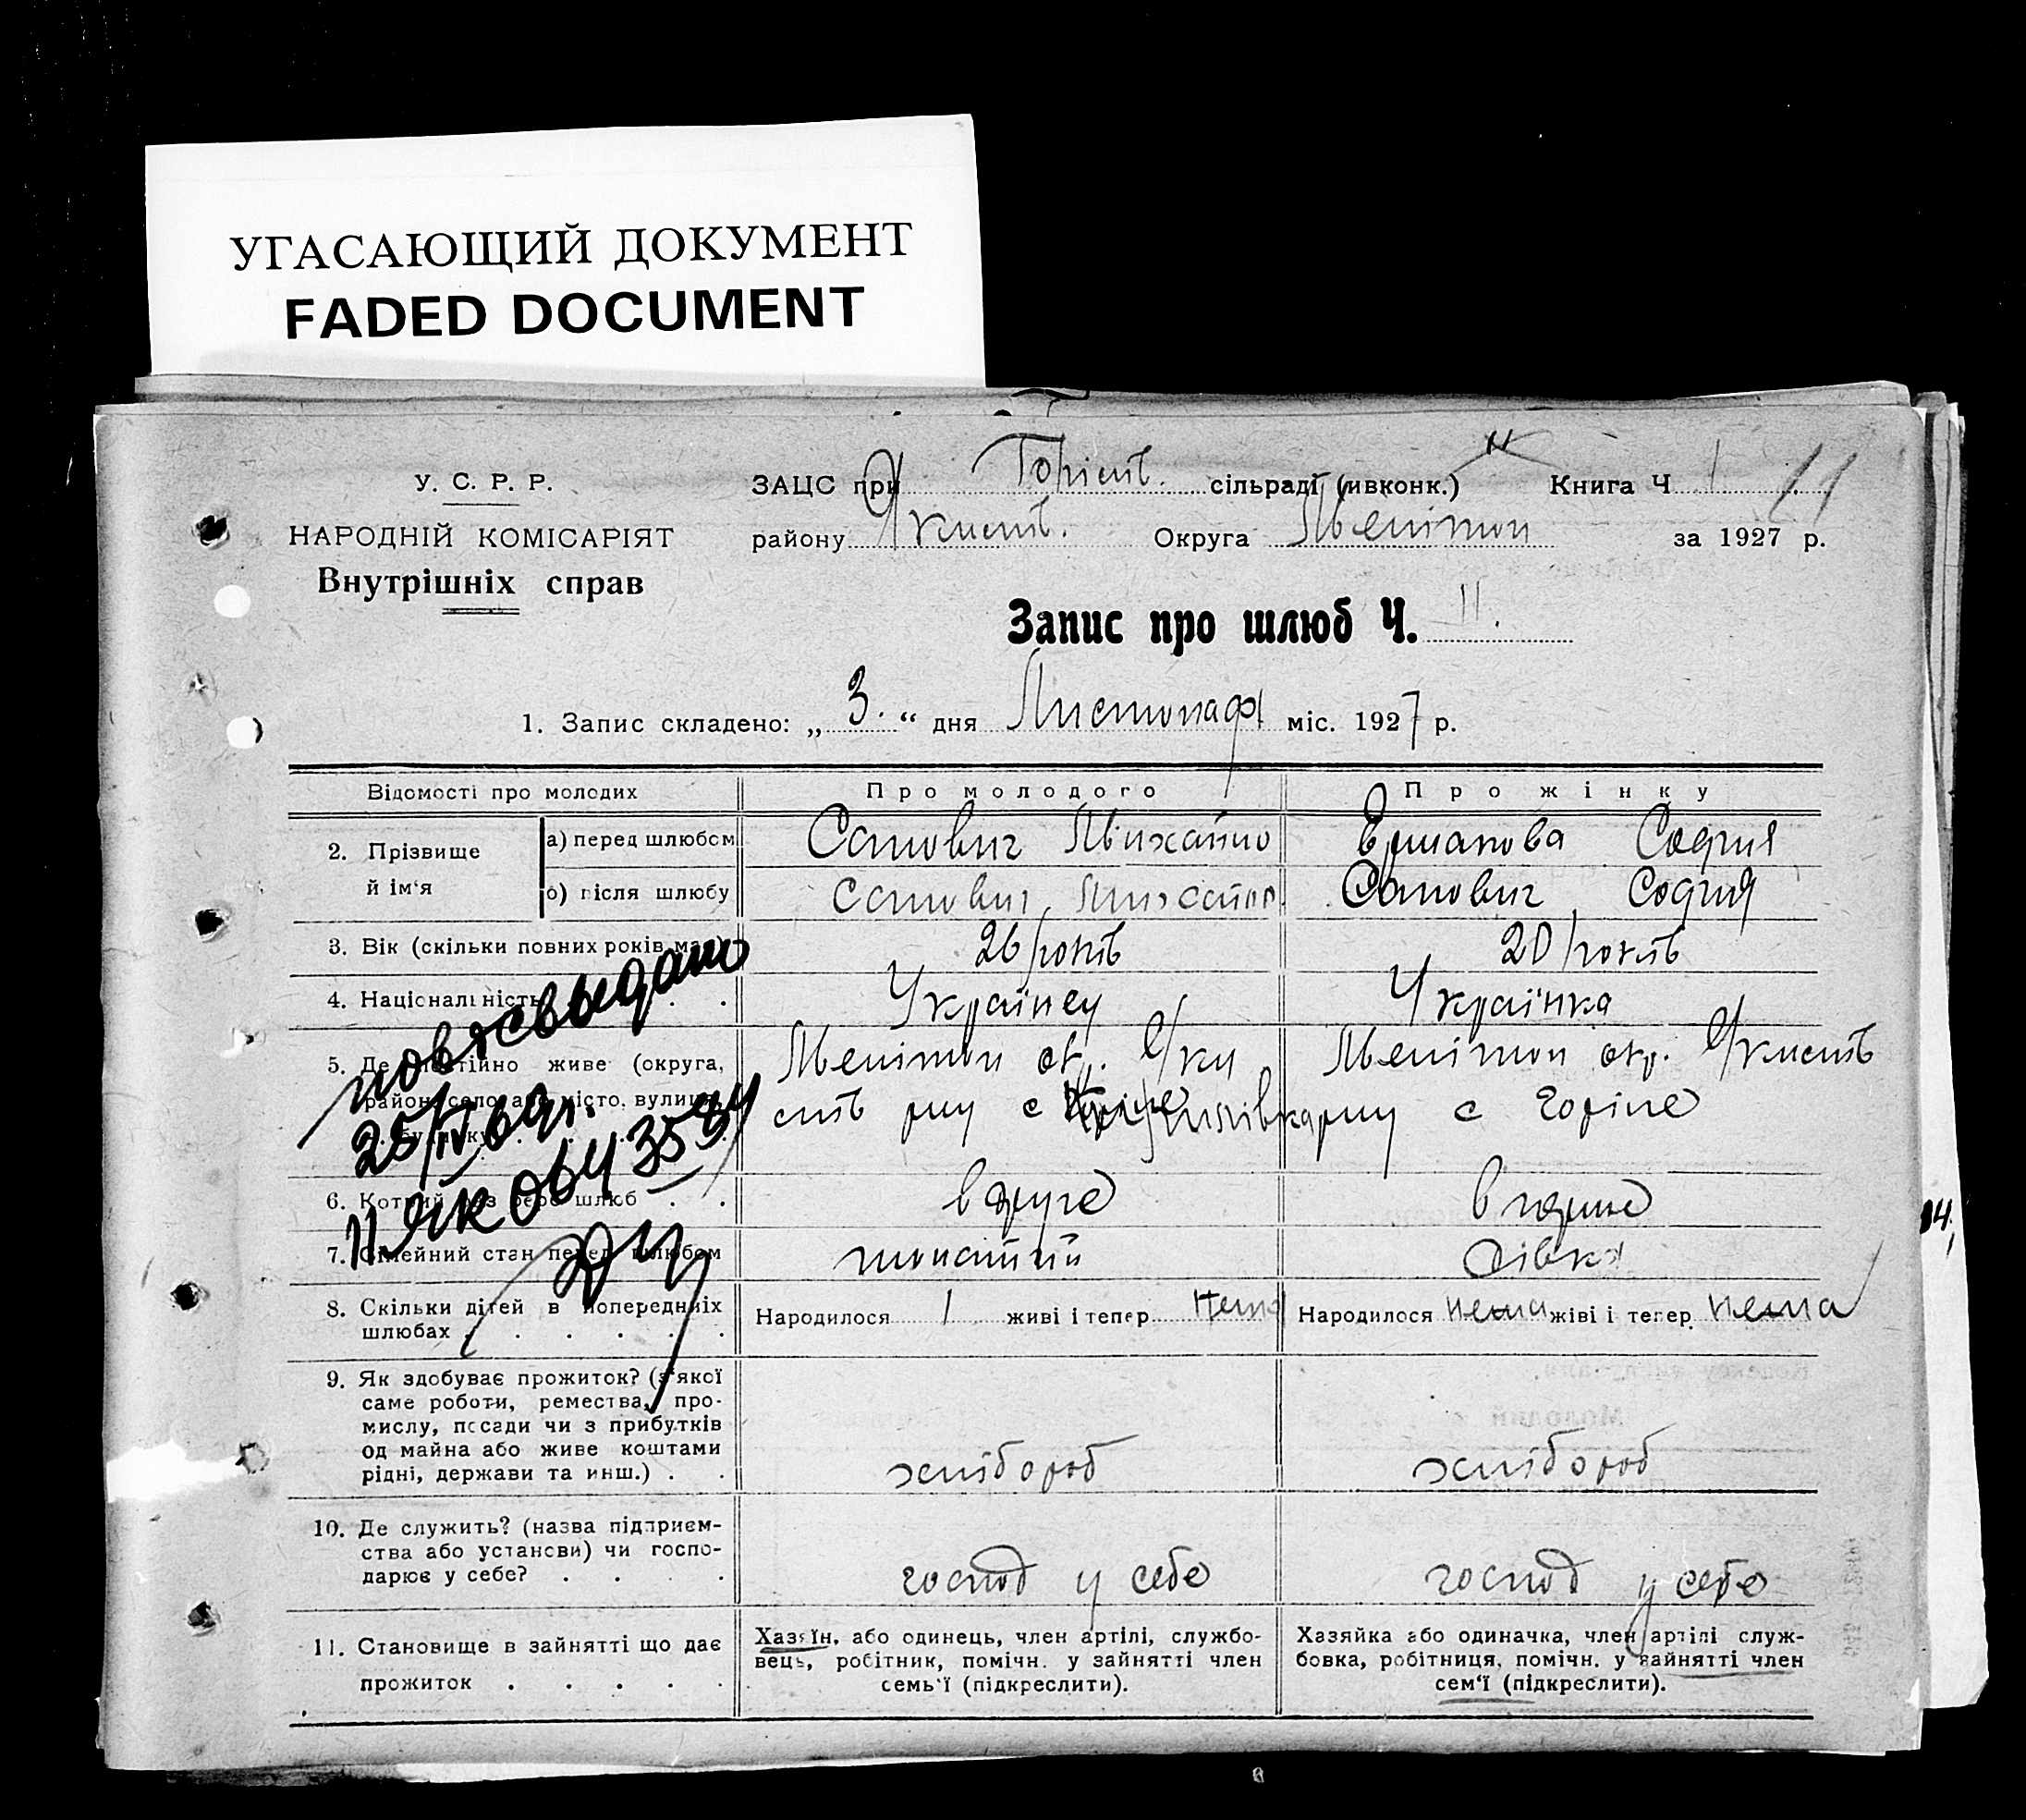 УГАСАЮЩИЙ ДОКУМЕНТ
FADED DOCUMENT
У. С. Р. Р.
НАРОДНІЙ КОМІСАРІЯТ
Внутрішніх справ
ЗАЦС при Горіст. сільраді (ивконк.) Книга Ч 1 11
району Якист. Округа Мелітоп за 1927 р.
Запис про шлюб Ч. 11.
1. Запис складено: „ 3. “ дня Листопада міс. 1927 р.
Відомості про молодих Про молодого Про жінку
2. Прізвище й ім‘я
а) перед шлюбом Михайло Єрмакова София
б) після шлюбу Михайло София
3. Вік (скільки повних років має) 26 років 20 років
4. Національність Українец Українка
5. Де постійно живе (округа, Мелітоп окр. Мелітоп окр.
район, село, або місто, вулиця, рну с рну с Горіле
будинку
6. Котрий раз бере шлюб вдруге вперше
7. Сімейний стан перед шлюбом жонатий дівка
8. Скільки дітей в попередніх Народилося 1 живі і тепер нема Народилося нема живі і тепер нема
шлюбах
9. Як здобуває прожиток? (з якої
саме роботи, ремества, про-
мислу, посади чи з прибутків
од майна або живе коштами
рідні, держави та инш.) хлібороб хлібороб
10. Де служить? (назва підприєм-
ства або установи) чи госпо-
дарює у себе? господ у себе господ у себе
11. Становище в зайнятті що дає
прожиток
Хазяїн, або одинець, член артілі, службо-
вець, робітник, помічн. у зайнятті член
семь‘ї (підкреслити).
Хазяйка або одиначка, член артілі служ-
бовка, робітниця, помічн. у зайнятті член
сем‘ї (підкреслити).
повт свыдано